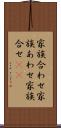 家族合わせ家
族あわせ家族
合せ